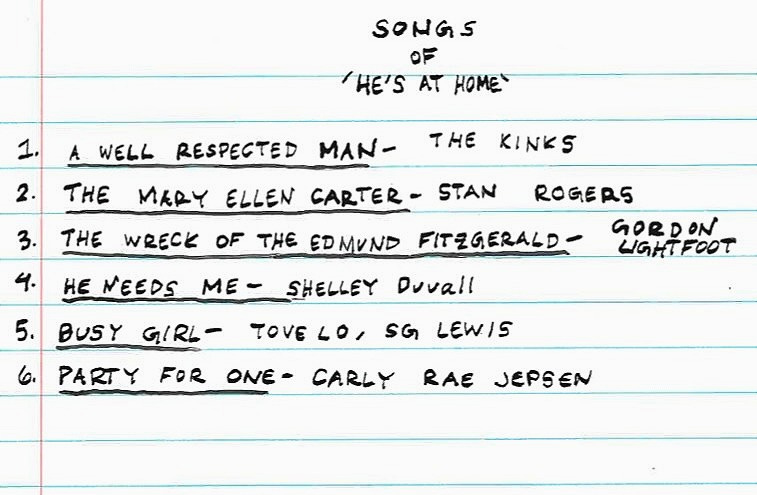 SONGS
OF
'HE'S AT HOME'
1. A WELL RESPECTED MAN - THE KINKS
2. THE MARY ELLEN CARTER - STAN ROGERS
3. THE WRECK OF THE EDMUND FITZGERALD - GORDON LIGHTFOOT
4. HE NEEDS ME - SHELLEY DuvAll
5. BUSY GIRL - TOVE LO, SG LEWIS
6. PARTY FOR ONE - CARLY RAE JEPSEN